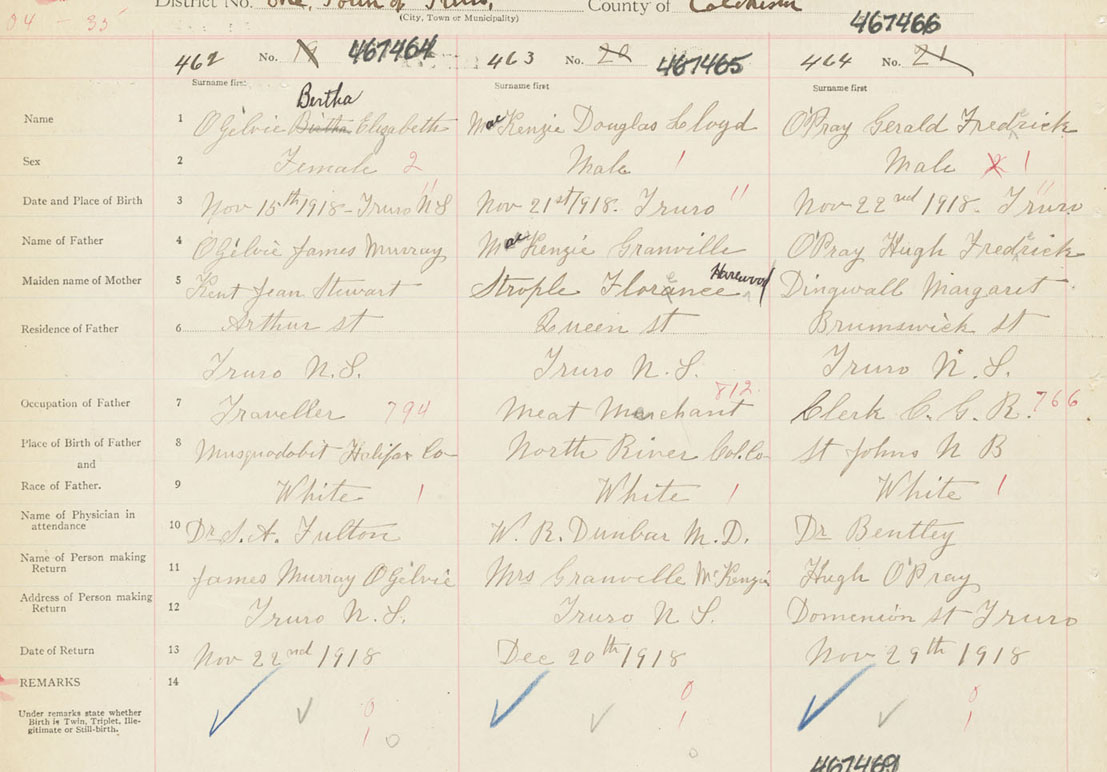 District No. One, Town of Truro, County of Colchester
(City, Town or Municipality)
94 - 35
467466
462 No. 19 467464 463 No. 20 467465 464 No. 21
Surname first Surname first Surname first
Bertha
Name 1 O'Gilvie Birtha Elizabeth MacKenzie Douglas Lloyd O'Pray Gerald Fredrick
Sex 2 Female 2 Male 1 Male 2 1
Date and Place of Birth 3 Nov 15th 1918 - Truro N S " Nov 21st 1918. Truro " Nov 22nd 1918. Truro "
Name of Father 4 O'Gilvie James Murray MacKenzie Granville O'Pray Hugh Fredrick
Maiden name of Mother 5 Kent Jean Stewart Strople Florence Harewood Dingwall Margaret
Residence of Father 6 Arthur st Queen st Brumswick st
Truro N.S. Truro N.S. Truro N.S.
Occupation of Father 7 Traveller 794 Meat Merchant 812 Clerk C. G. R. 766
Place of Birth of Father 8 Musquodobit Halifax Co North River Col. Co St Johns N B
and
Race of Father. 9 White 1 White 1 White 1
Name of Physician in attendance 10 Dr S. A. Fulton W. R. Dunbar M. D. Dr Bentley
Name of Person making Return 11 James Murray O'Gilvie Mrs Granville McKenzie Hugh O'Pray
Address of Person making Return 12 Truro N.S. Truro N S. Domenion st Truro
Date of Return 13 Nov 22nd 1918 Dec 20th 1918 Nov 29th 1918
REMARKS 14
Under remarks state whether
Birth is Twin, Triplet, Ille-
gitimate or Still-birth.
0 0 0
1 0 1 1
0
467469